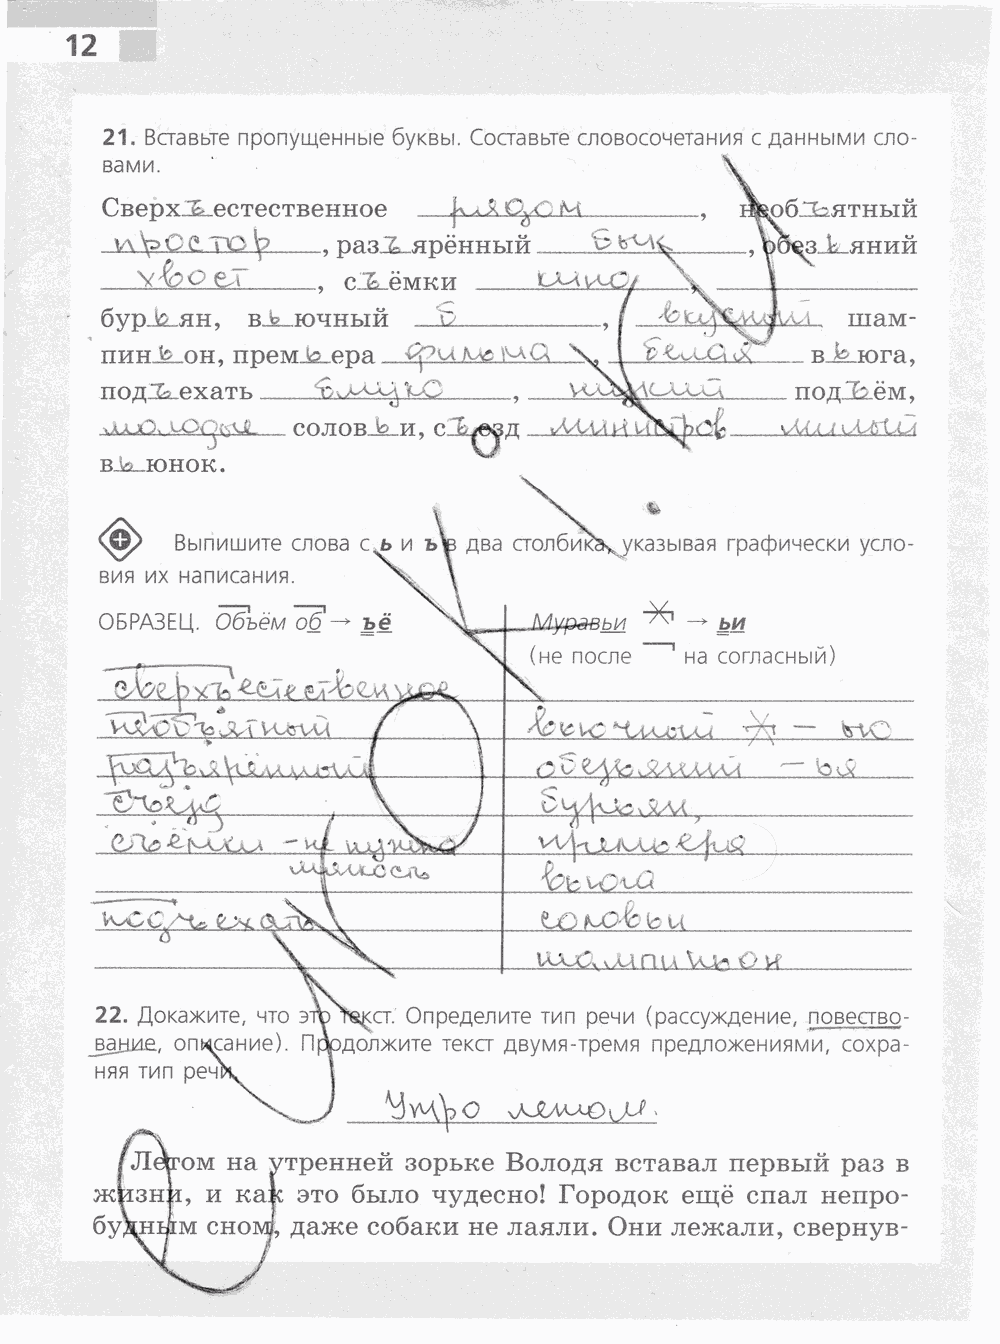 12
21. Вставьте пропущенные буквы. Составьте словосочетания с данными сло-
вами.
Сверхъестественное рядом, необъятный
простор, разъярённый бык, обезьяний
хвост, съёмки кино,
бурьян, вьючный б, вкусный шам-
пиньон, премьера фильма, белая вьюга,
подъехать близко, низкий подъём,
молодые соловьи, съезд министров милый
вьюнок.
Выпишите слова с ь и ъ в два столбика, указывая графически усло-
вия их написания.
ОБРАЗЕЦ. Объём об → ъё Муравьи → ьи
(не после на согласный)
сверхъестественное
необъятный вьючный – ью
разъярённый обезьяний – ья
съезд бурьян,
съёмки – не нужна премьера
мягкость вьюга
подъехать соловьи
шампиньон
22. Докажите, что это текст. Определите тип речи (рассуждение, повество-
вание, описание). Продолжите текст двумя-тремя предложениями, сохра-
няя тип речи.
Утро летом.
Летом на утренней зорьке Володя вставал первый раз в
жизни, и как это было чудесно! Городок ещё спал непро-
будным сном, даже собаки не лаяли. Они лежали, свернув-